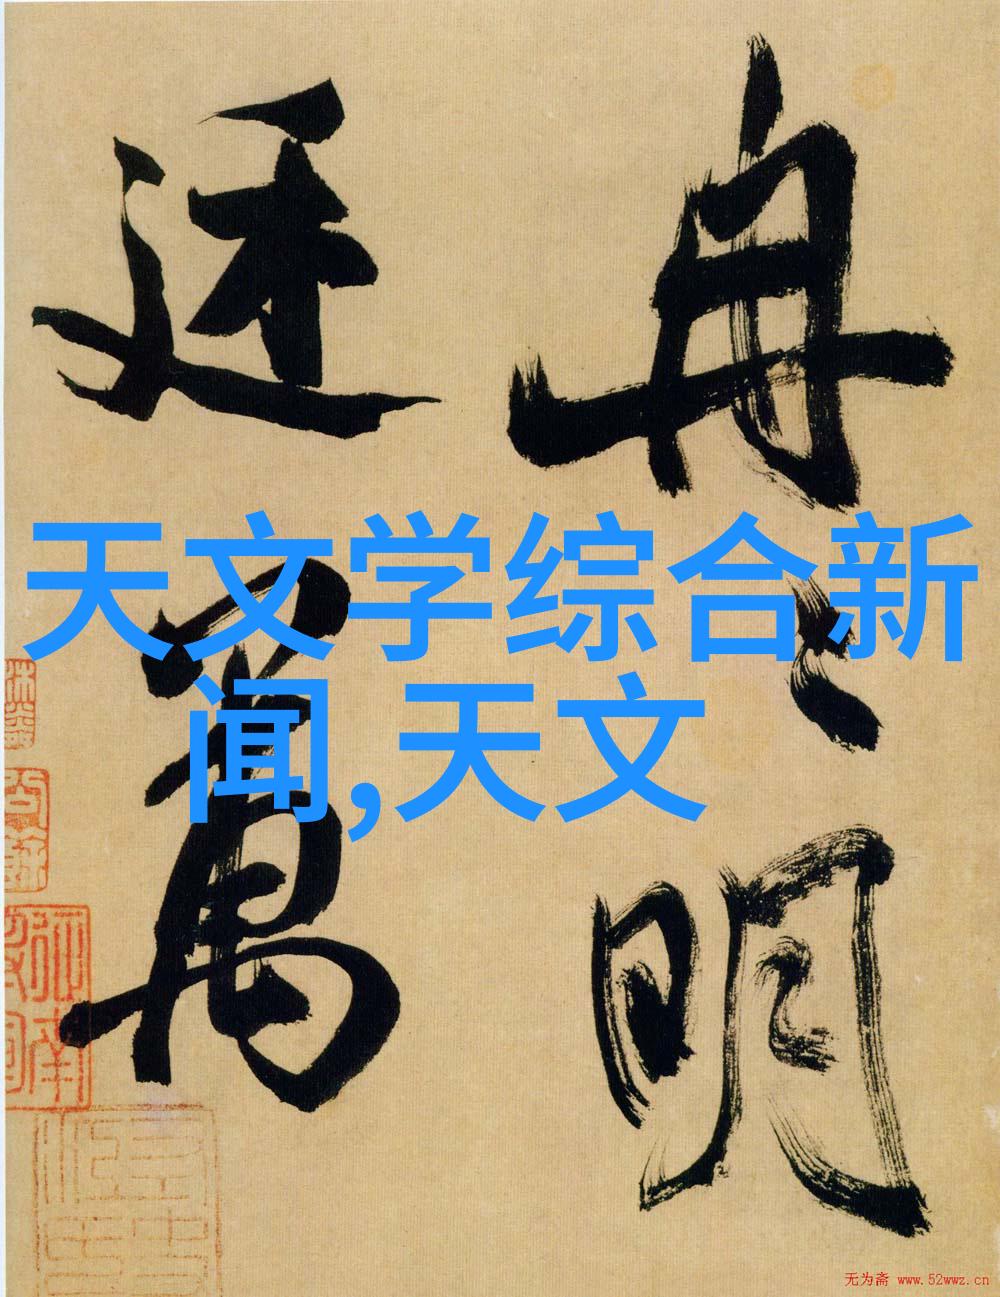 冉〻明
萬
天文学综合新
闻,天文
无为斋 www.52wwz.cn